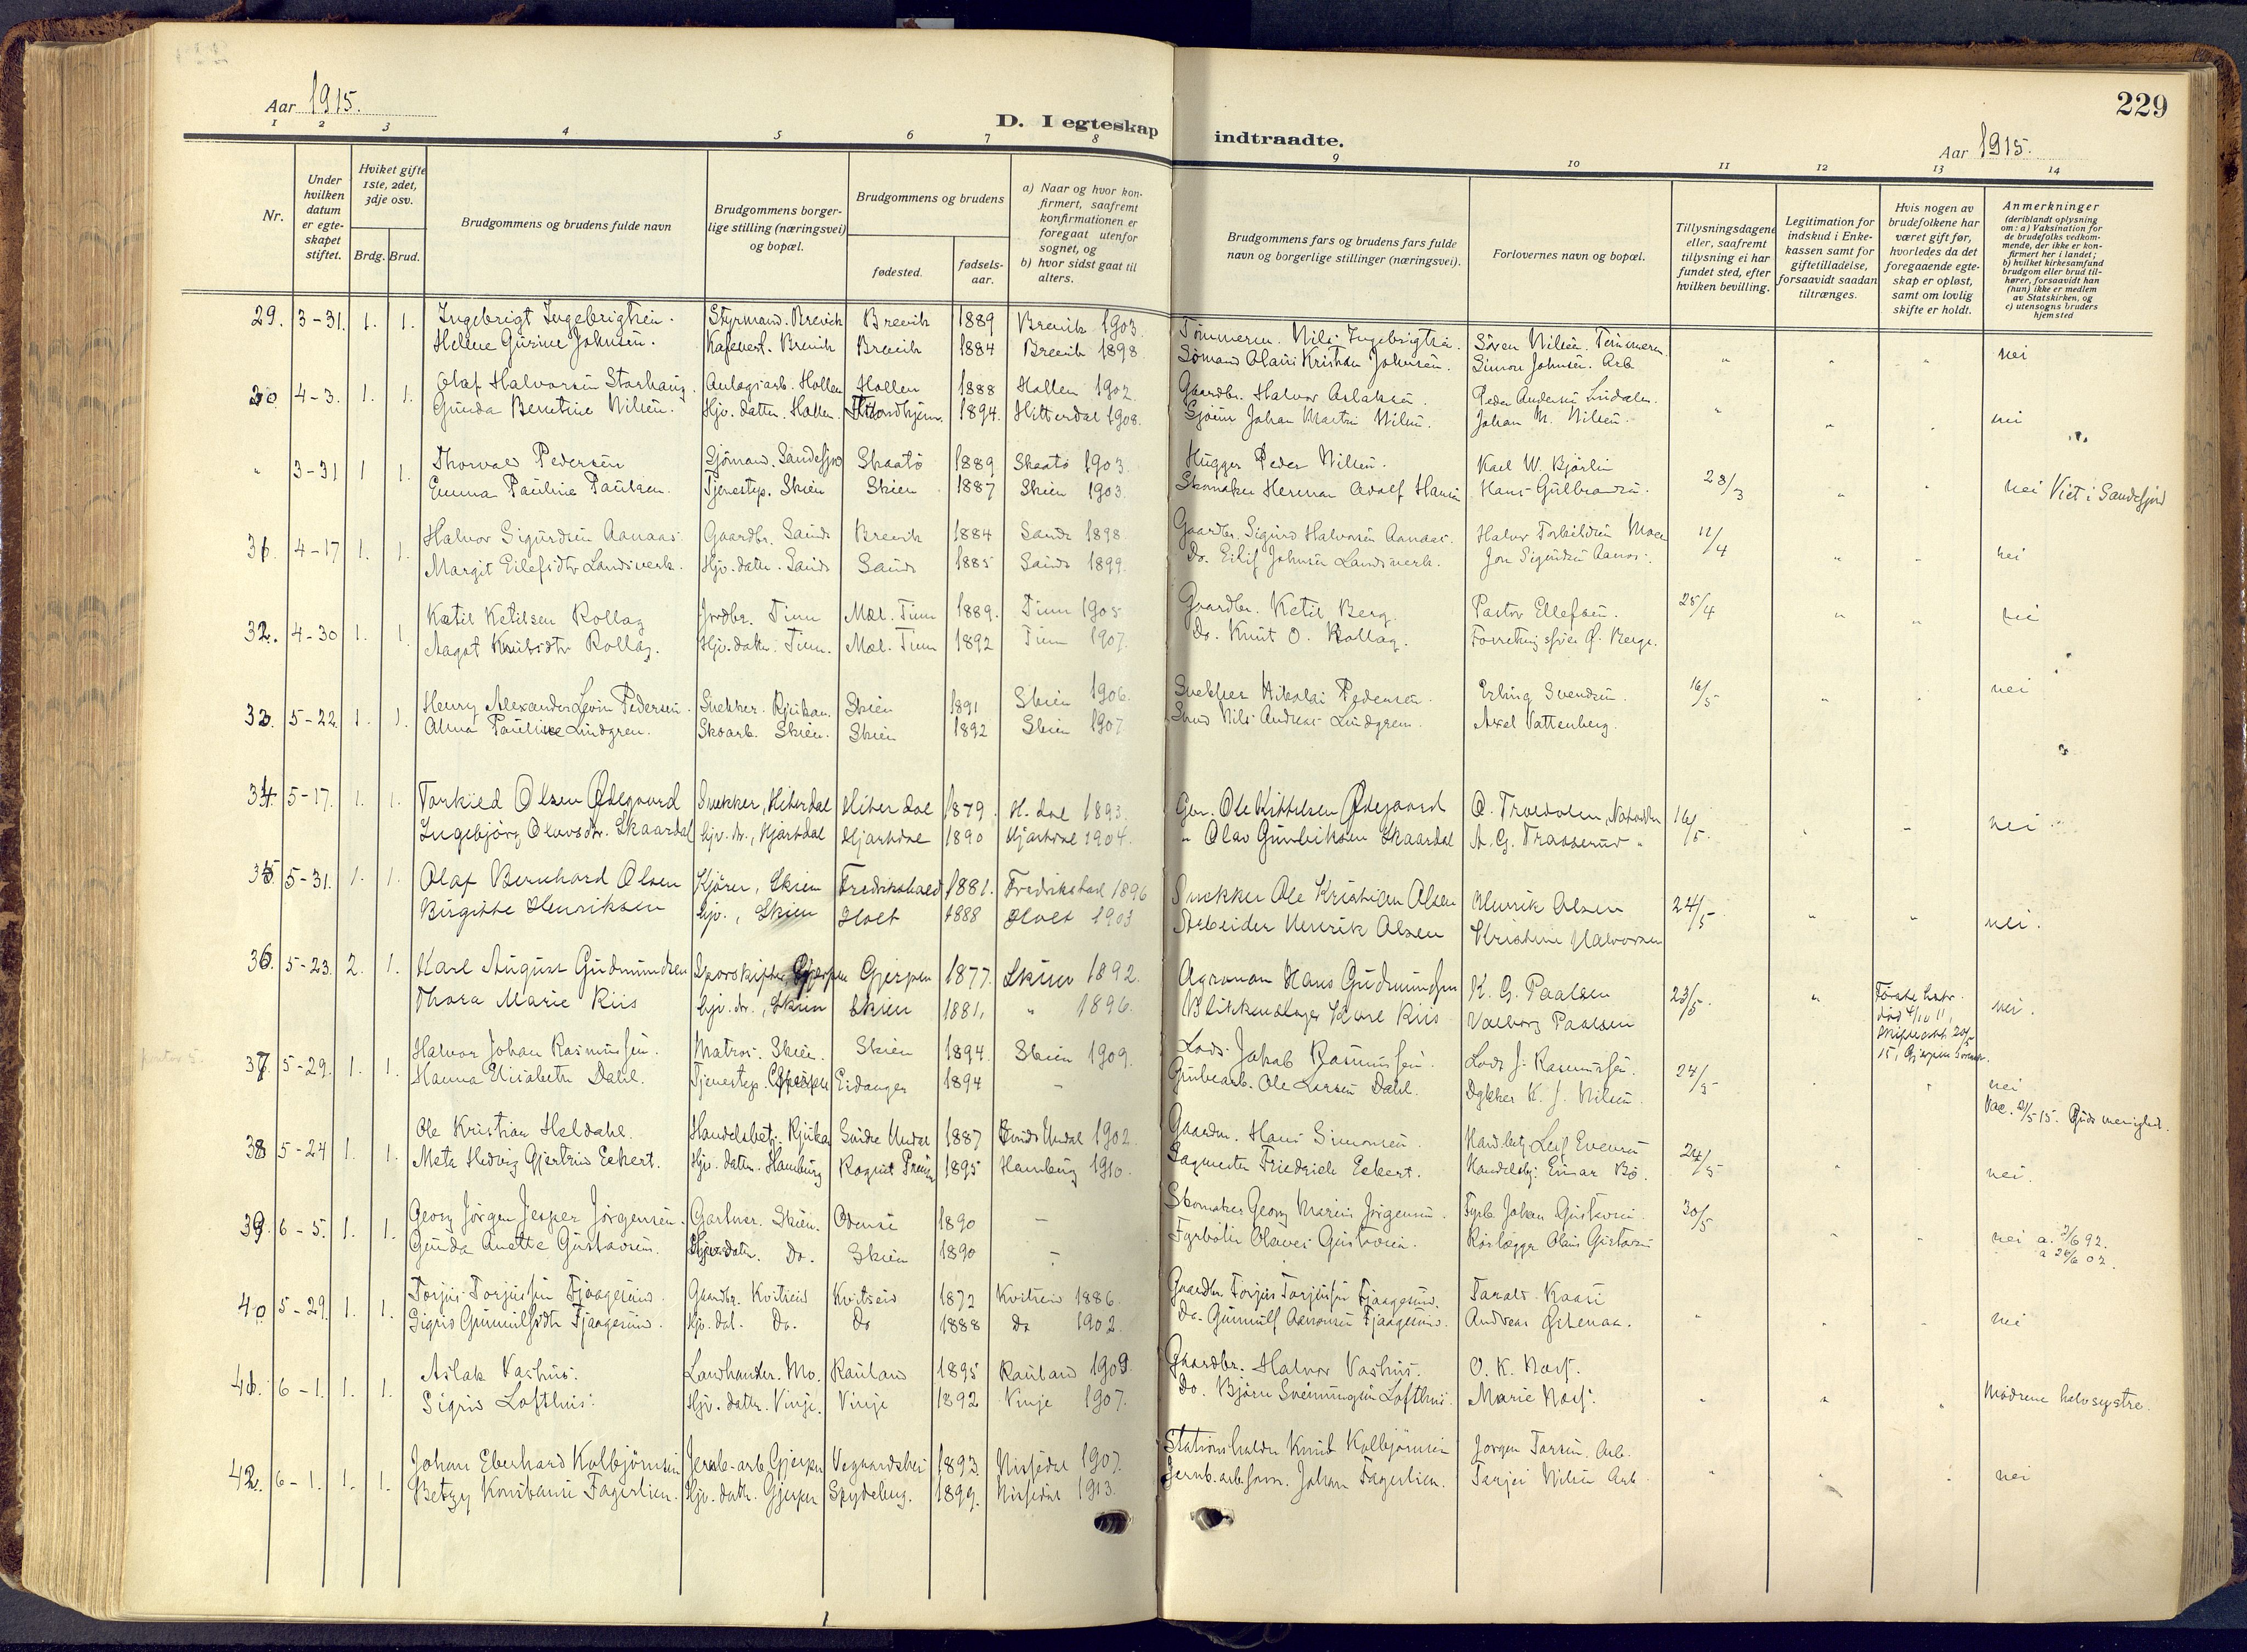 229
Aar 1915.
D. I egteskap indtraadte.
Aar 1915.
1 2 3 4 5 6 7 8 9 10 11 12 13 14
Nr.
Under hvilken datum er egteskapet stiftet.
Hviket gifte 1ste, 2det, 3dje osv.
Brdg. Brud.
Brudgommens og brudens fulde navn
Brudgommens borgerlige stilling (næringsvei) og bopæl.
Brudgommens og brudens
fødested.
fødselsaar.
a) Naar og hvor konfirmert, saafremt konfirmationen er foregaat utenfor sognet, og
b) hvor sidst gaat til alters.
Brudgommens fars og brudens fars fulde navn og borgerlige stillinger (næringsvei).
Forlovernes navn og bopæl.
Tillysningsdagene eller, saafremt tillysning ei har fundet sted, efter hvilken bevilling.
Legitimation for indskud i Enkekassen samt for giftetilladelse, forsaavidt saadan tiltrænges.
Hvis nogen av brudefolkene har været gift før, hvorledes da det foregaaende egteskap er opløst, samt om lovlig skifte er holdt.
Anmerkninger (deriblandt oplysning om: a) Vaksination for de brudefolks vedkommende, der ikke er konfirmert her i landet; b) hvilket kirkesamfund brudgom eller brud tilhører, forsaavidt han (hun) ikke er medlem av Statskirken, og c) utensogns bruders hjemsted
29. 3-31. 1. 1. Ingebrigt Ingebrigtsen. Styrmand. Brevik Brevik 1889 Brevik 1903. Tømmerm. Nils Ingebrigtsen. Søren Nilsen. Tømmerm.
Helene Gurine Johnsen. Brevik Brevik 1884 Brevik 1898 Sømand Olaus Kristian Johnsen. Simon Johnsen. Arb. " " " nei
30. 4-3. 1. 1. Olaf Halvorsen Storhaug. Anlægsarb. Hollen Hollen 1888 Hollen 1902. Gaardbr. Halvor Aslaksen. Peder Andersen Lindalen.
Gunda Berntine Nilsen. Hjv. datter. Hollen. 1894. Hitterdal 1908. Johan Martin Nilsen. Johan M. Nilsen. " " " nei
" 3-31 1 1. Thorvald Pedersen Sjømand. Sandefjord Skaatø 1889 Skaatø 1903. Hugger Peder Nilsen. Karl W. Bjørlin
Emma Pauline Paulsen. Tjenestep. Skien Skien 1887 Skien 1903. Skomaker Herman Adolf Hansen Hans Gulbrandsen. 28/3 " " nei Viet i Sandefjord
31. 4-17 1. 1. Halvor Sigurdsen Aanaas Gaardbr. Saude Brevik 1884 Saude 1898. Gaardbr. Sigurd Halvorsen Aanaas. Halvor Torkildsen Moen 11/4
Margit Eilefsdtr Landsverk. Hjv. datter. Saude Saude 1885 Saude 1899. Do. Eilif Johnsen Landsverk. Jon Sigurdsen Aanas. " " nei
32. 4-30 1. 1. Ketil Ketilsen Rollag Jordbr. Tinn Mæl. Tinn 1889. Tinn 1905 Gaardbr. Ketil Berg. Pastor Ellefsen. 25/4 " " nei
Aagot Knutsdtr Rollag. Hjv. datter. Tinn. Mæl. Tinn 1892 Tinn 1907. Do. Knut O. Rollag.
33. 5-22 1. 1. Henry Alexander Levin Pedersen. Snekker. Rjukan. Skien 1891 Skien 1906. Snekker Nikolai Pedersen. Erling Svendsen. 16/5 " " nei
Alma Pauline Lindgren. Skoarb. Skien. Skien 1892 Skien 1907 Smed Nils Andreas Lindgren. Axel Vattenberg.
34. 5-17. 1. 1. Torkild Olsen Ødegaard Snekker, Hiterdal Hiterdal 1879. H. dal 1893. Gbr. Ole Kittelsen Ødegaard O. Troedolen, Notodden 16/5
Ingebjørg Olavsdtr. Skaardal hjv. dr., Hjartdal Hjartdal 1890 Hjartdal 1904. " Olav Gunleiksen Skaardal A. G. Traaserud " nei
35. 5-31. 1. 1. Olaf Bernhard Olsen Kjører, Skien Fredrikshald 1881. Fredrikstad 1896 Snekker Ole Kristian Olsen Henrik Olsen 24/5
Birgitte Henriksen hjv., Skien Holt 1888 Holt 1903 Arbeider Henrik Olsen Kristine Halvorsen " " nei.
36. 5-23. 2. 1. Karl August Gudmundsen Gjerpen Gjerpen 1877. Skien 1892. Agronom Hans Gudmundsen K. G. Paalsen 23/5 "
Thora Marie Riis hjv. dr., Skien Skien 1881, " 1896. Blikkenslager Karl Riis Valborg Paalsen nei.
37. 5-29. 1. 1. Halvor Johan Rasmussen. Matros. Skien. Skien 1894. Skien 1909. Lods Jakob Rasmussen. Lods J. Rasmussen.
Hanna Elisabeth Dahl. Tjenestep. Gjerpen Eidanger 1894 - Grubearb. Ole Larsen Dahl. Dykker K. J. Nilsen. 24/5 nei
Vac. 21/5 15. Guds menighed.
38 5-24 1. 1. Ole Kristian Heldahl. Handelsbetj. Rjukan Søndre Undal 1887 Søndre Undal 1902. Gaardm. Hans Simonsen. Hand.betj Leif Evensen 24/5
Meta Hedvig Gjertrud Eckert. Hjv. datter. Hamburg 1895 Hamburg 1910. Sagmester Friedrich Eckert. Handelsbj. Einar Bø. nei.
39. 6-5. 1. 1. Georg Jørgen Jesper Jørgensen. Gartner. Skien. Odense 1890 - Skomaker Georg Marius Jørgensen. Fyrb. Johan Gustavsen. 30/5
Gunda Anette Gustavsen. Do. Skien 1890 - Fyrbøter Olaves Gustavsen. Rørlægger Olaus Gustavsen nei a. 21/6 92.
a 26/6 02.
40 5-29. 1. 1. Torjus Torjussen Fjaagesund. Gaardbr. Kvitseid Kvitseid 1872 Kvitseid 1886. Gaardbr. Torjus Torjussen Fjaagesund. Taralt Kaasi
Sigrid Gunnulfsdtr Fjaagesund. Hjv. dat. Do. Do 1888 Do 1902. Do. Gunnulf Aanonsen Fjaagesund. Andreas Østenaa. " " nei
41. 6-1. 1. 1. Aslak Vashus. Landhandler. Mo. Rauland 1895 Rauland 1909. Gaardbr. Halvor Vashus. O. K. Næss.
Sigrid Lofthus. Hjv. datter. Vinje. Vinje 1892 Vinje 1907. Do. Bjørn Sveinungsen Lofthus. Marie Næss. " " " Mødrene halvsøstre.
42. 6-1. 1. 1. Johan Eberhard Kolbjørnsen Jernb.-arb. Gjerpen Vegaardshei 1893. Nissedal 1907. Stationsholder Knut Kolbjørnsen Jørgen Tarsen. Arb.
Betzy Konstanse Fagerlien. Hjv. datter. Gjerpen Spydeberg. 1899. Nissedal 1913. Jernb.arb.form. Johan Fagerlien. Terjei Nilsen Arb. " " " nei